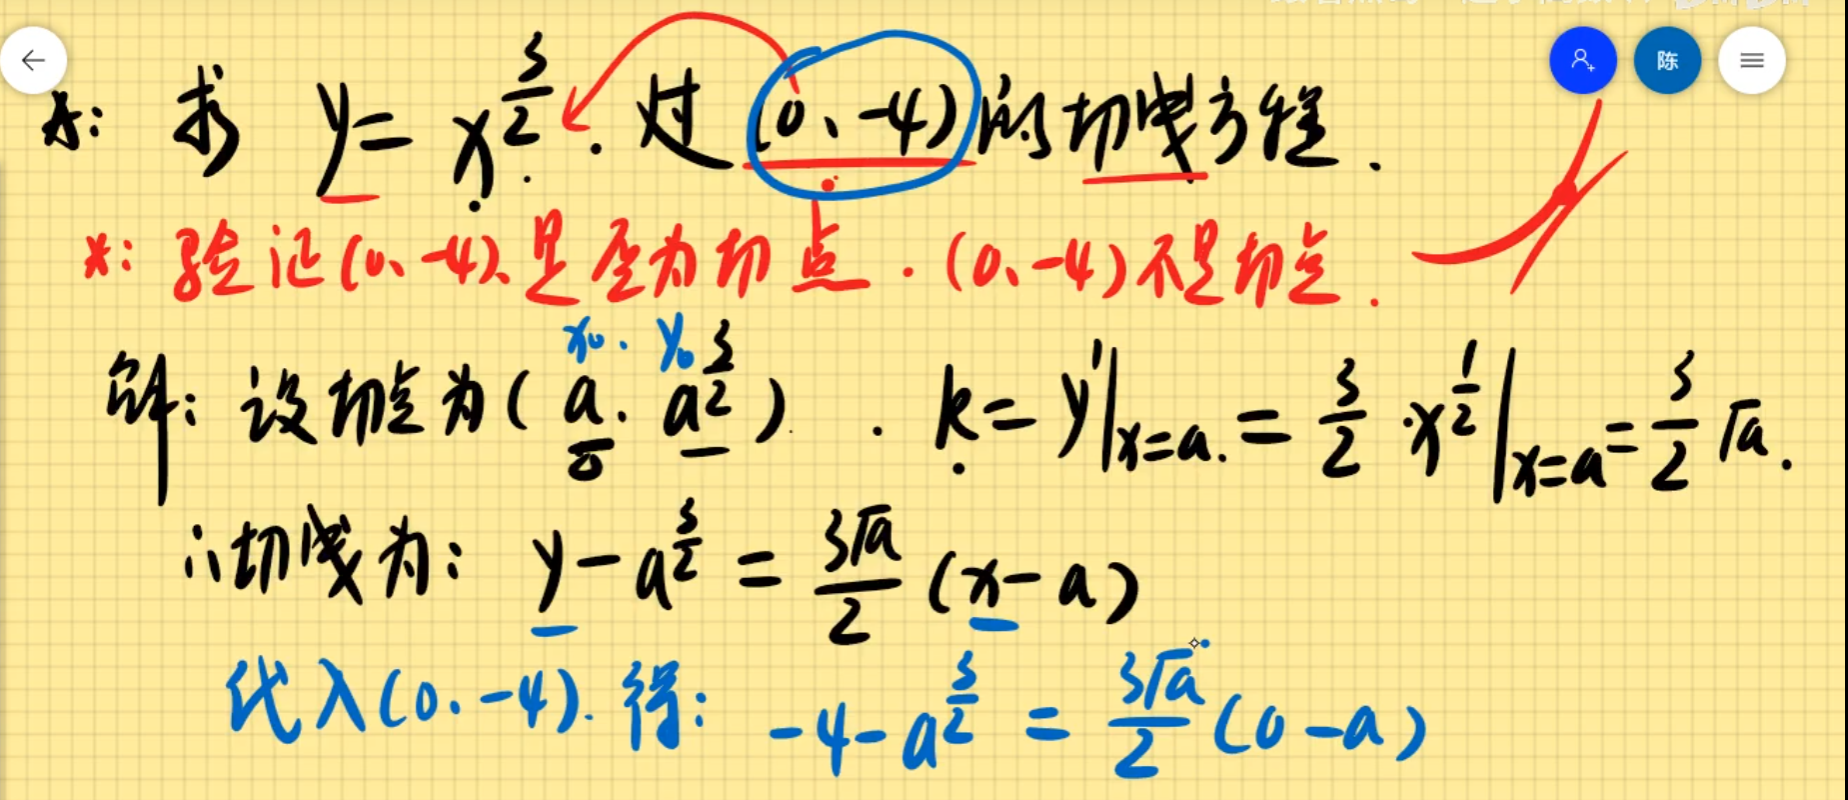 陈
求 y = x^{3/2} . 过 (0、-4) 的切线方程.
*: 验证(0、-4)、是否为切点. (0、-4)不是切点.
x₀. y₀
解: 设切点为(a. a^{3/2}). k = y'|_{x=a.} = 3/2 · x^{1/2}|_{x=a} = 3/2 √a.
∴切线为: y - a^{3/2} = 3√a/2 (x - a)
代入(0. -4). 得: -4 - a^{3/2} = 3√a/2 (0 - a)